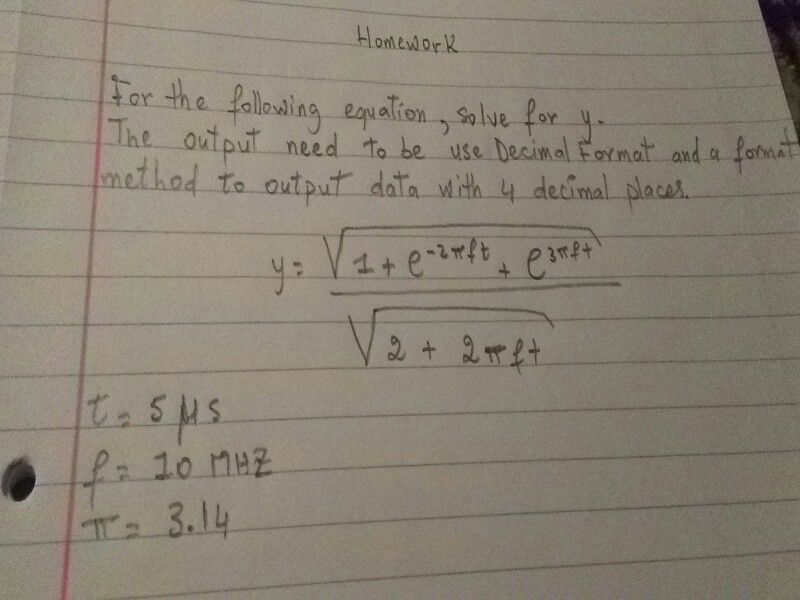 Homework
For the following equation, solve for y.
The output need to be use Decimal Format and a format
method to output data with 4 decimal places.
y = √(1 + e^(-2πft) + e^(3πft)) / √(2 + 2πft)
t = 5 μs
f = 10 MHZ
π = 3.14